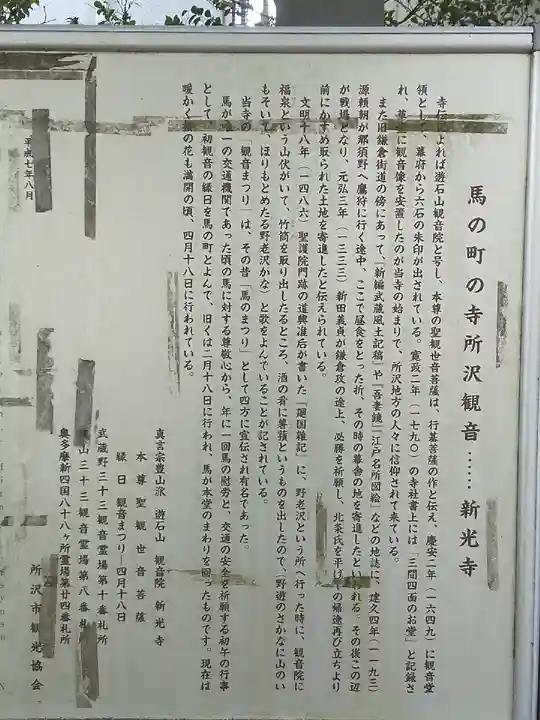 馬の町の寺所沢観音……新光寺
寺伝によれば遊石山観音院と号し、本尊の聖観世音菩薩は、行基菩薩の作と伝え、慶安二年(一六四九)に観音堂
領として、幕府から六石の朱印が出されている。寛政二年(一七九〇)の寺社書上には「三間四面のお堂」と記録さ
れ、草堂に観音像を安置したのが当寺の始まりで、所沢地方の人々に信仰されて来ている。
また旧鎌倉街道の傍にあって、「新編武蔵風土記稿」や『吾妻鏡』『江戸名所図絵』などの地誌に、建久四年(一一九三)
源頼朝が那須野へ鷹狩に行く途中、ここで昼食をとった折、その時の幕舎の地を寄進したといわれる。その後この辺
が戦場となり、元弘三年(一三三三)新田義貞が鎌倉攻の途上、必勝を祈願し、北条氏を平げての帰途再び立ちより
前にかすめ取られた土地を寄進したと伝えられている。
文明十八年(一四八六)聖護院門跡の道興准后が書いた「廻国雑記」に、野老沢という所へ行った時に、観音院に
福泉という山伏がいて、竹筒を取り出したるところ、酒の肴に薯蕷というものを出したので、(野遊のさかなに山のい
もそいて ほりもとめたる野老沢かな)と歌をよんでいることが記されている。
当寺の「観音まつり」は、その昔「馬のまつり」として四方に宣伝され有名であった。
馬が唯一の交通機関であった頃の馬に対する尊敬心から、年に一回馬の慰労と、交通の安全を祈願する初午の行事
として、初観音の縁日を馬の町とよんで、旧くは二月十八日に行われ、馬が本堂のまわりを回ったものです。現在は
暖かく桜の花も満開の頃、四月十八日に行われている。
真言宗豊山派 遊石山 観音院 新光寺
本尊 聖観世音菩薩
縁日 観音まつり 四月十八日
武蔵野三十三観音霊場第十番札所
山三十三観音霊場第八番札所
奥多摩新四国八十八ヶ所霊場第廿四番札所
平成七年八月
所沢市観光協会